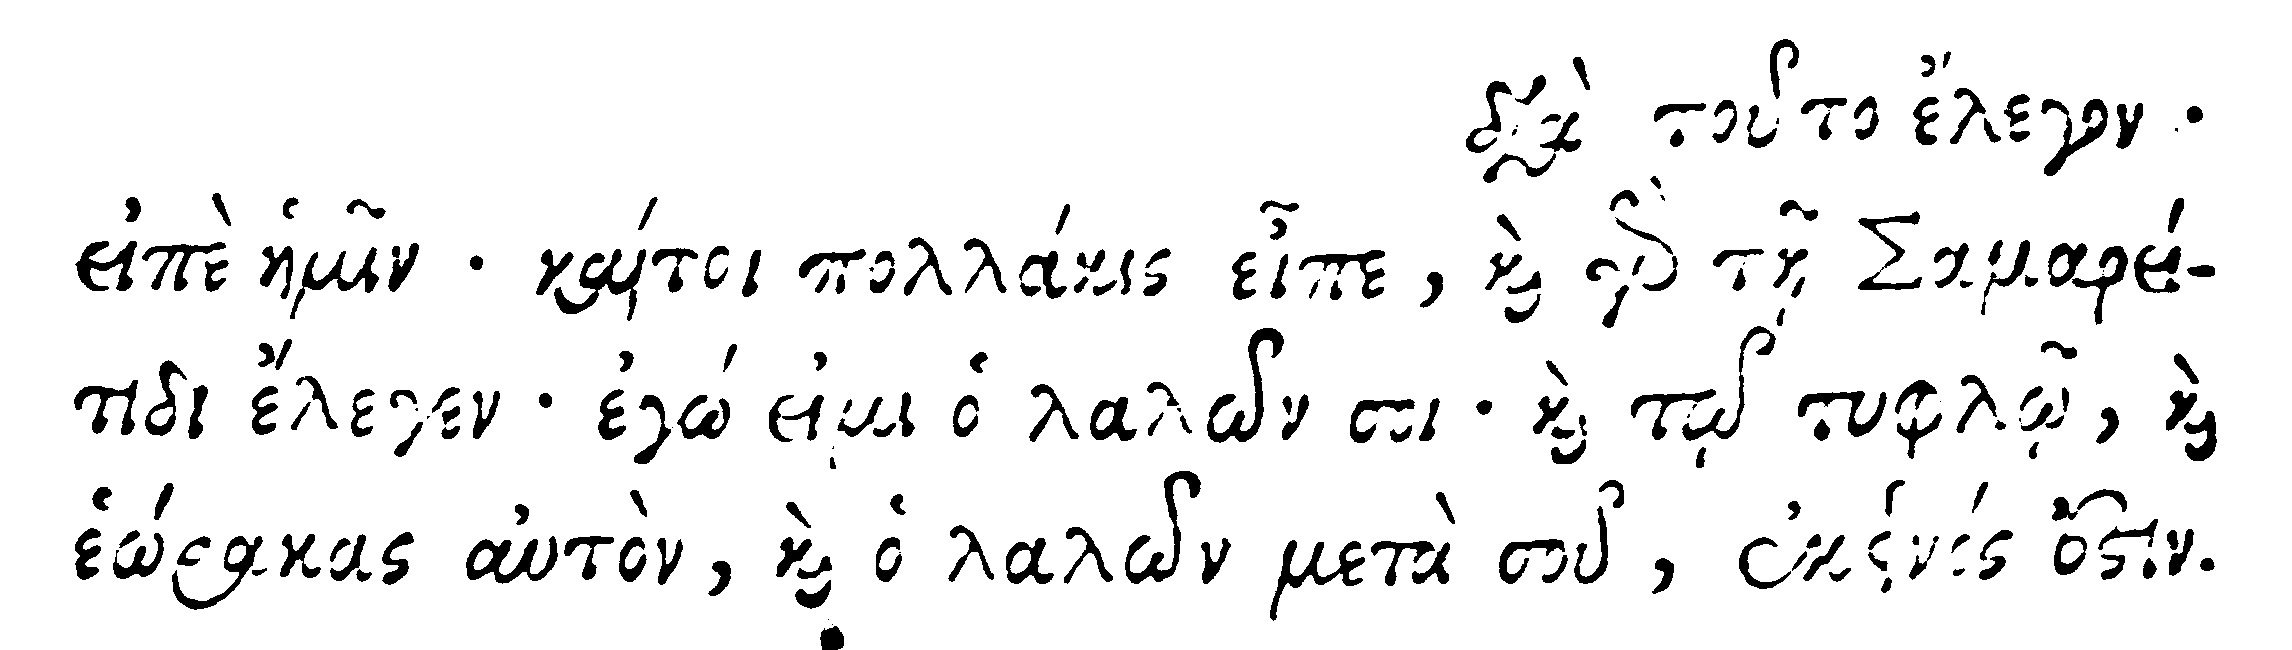 διὰ τοῦτο ἔλεγον ·
εἰπὲ ἡμῖν · καίτοι πολλάκις εἶπε, καὶ γὰρ τῇ Σαμαρεί-
τιδι ἔλεγεν · ἐγώ εἰμι ὁ λαλῶν σοι · καὶ τῷ τυφλῷ, καὶ
ἑώρακας αὐτὸν, καὶ ὁ λαλῶν μετὰ σοῦ, ἐκεῖνός ἐστιν.